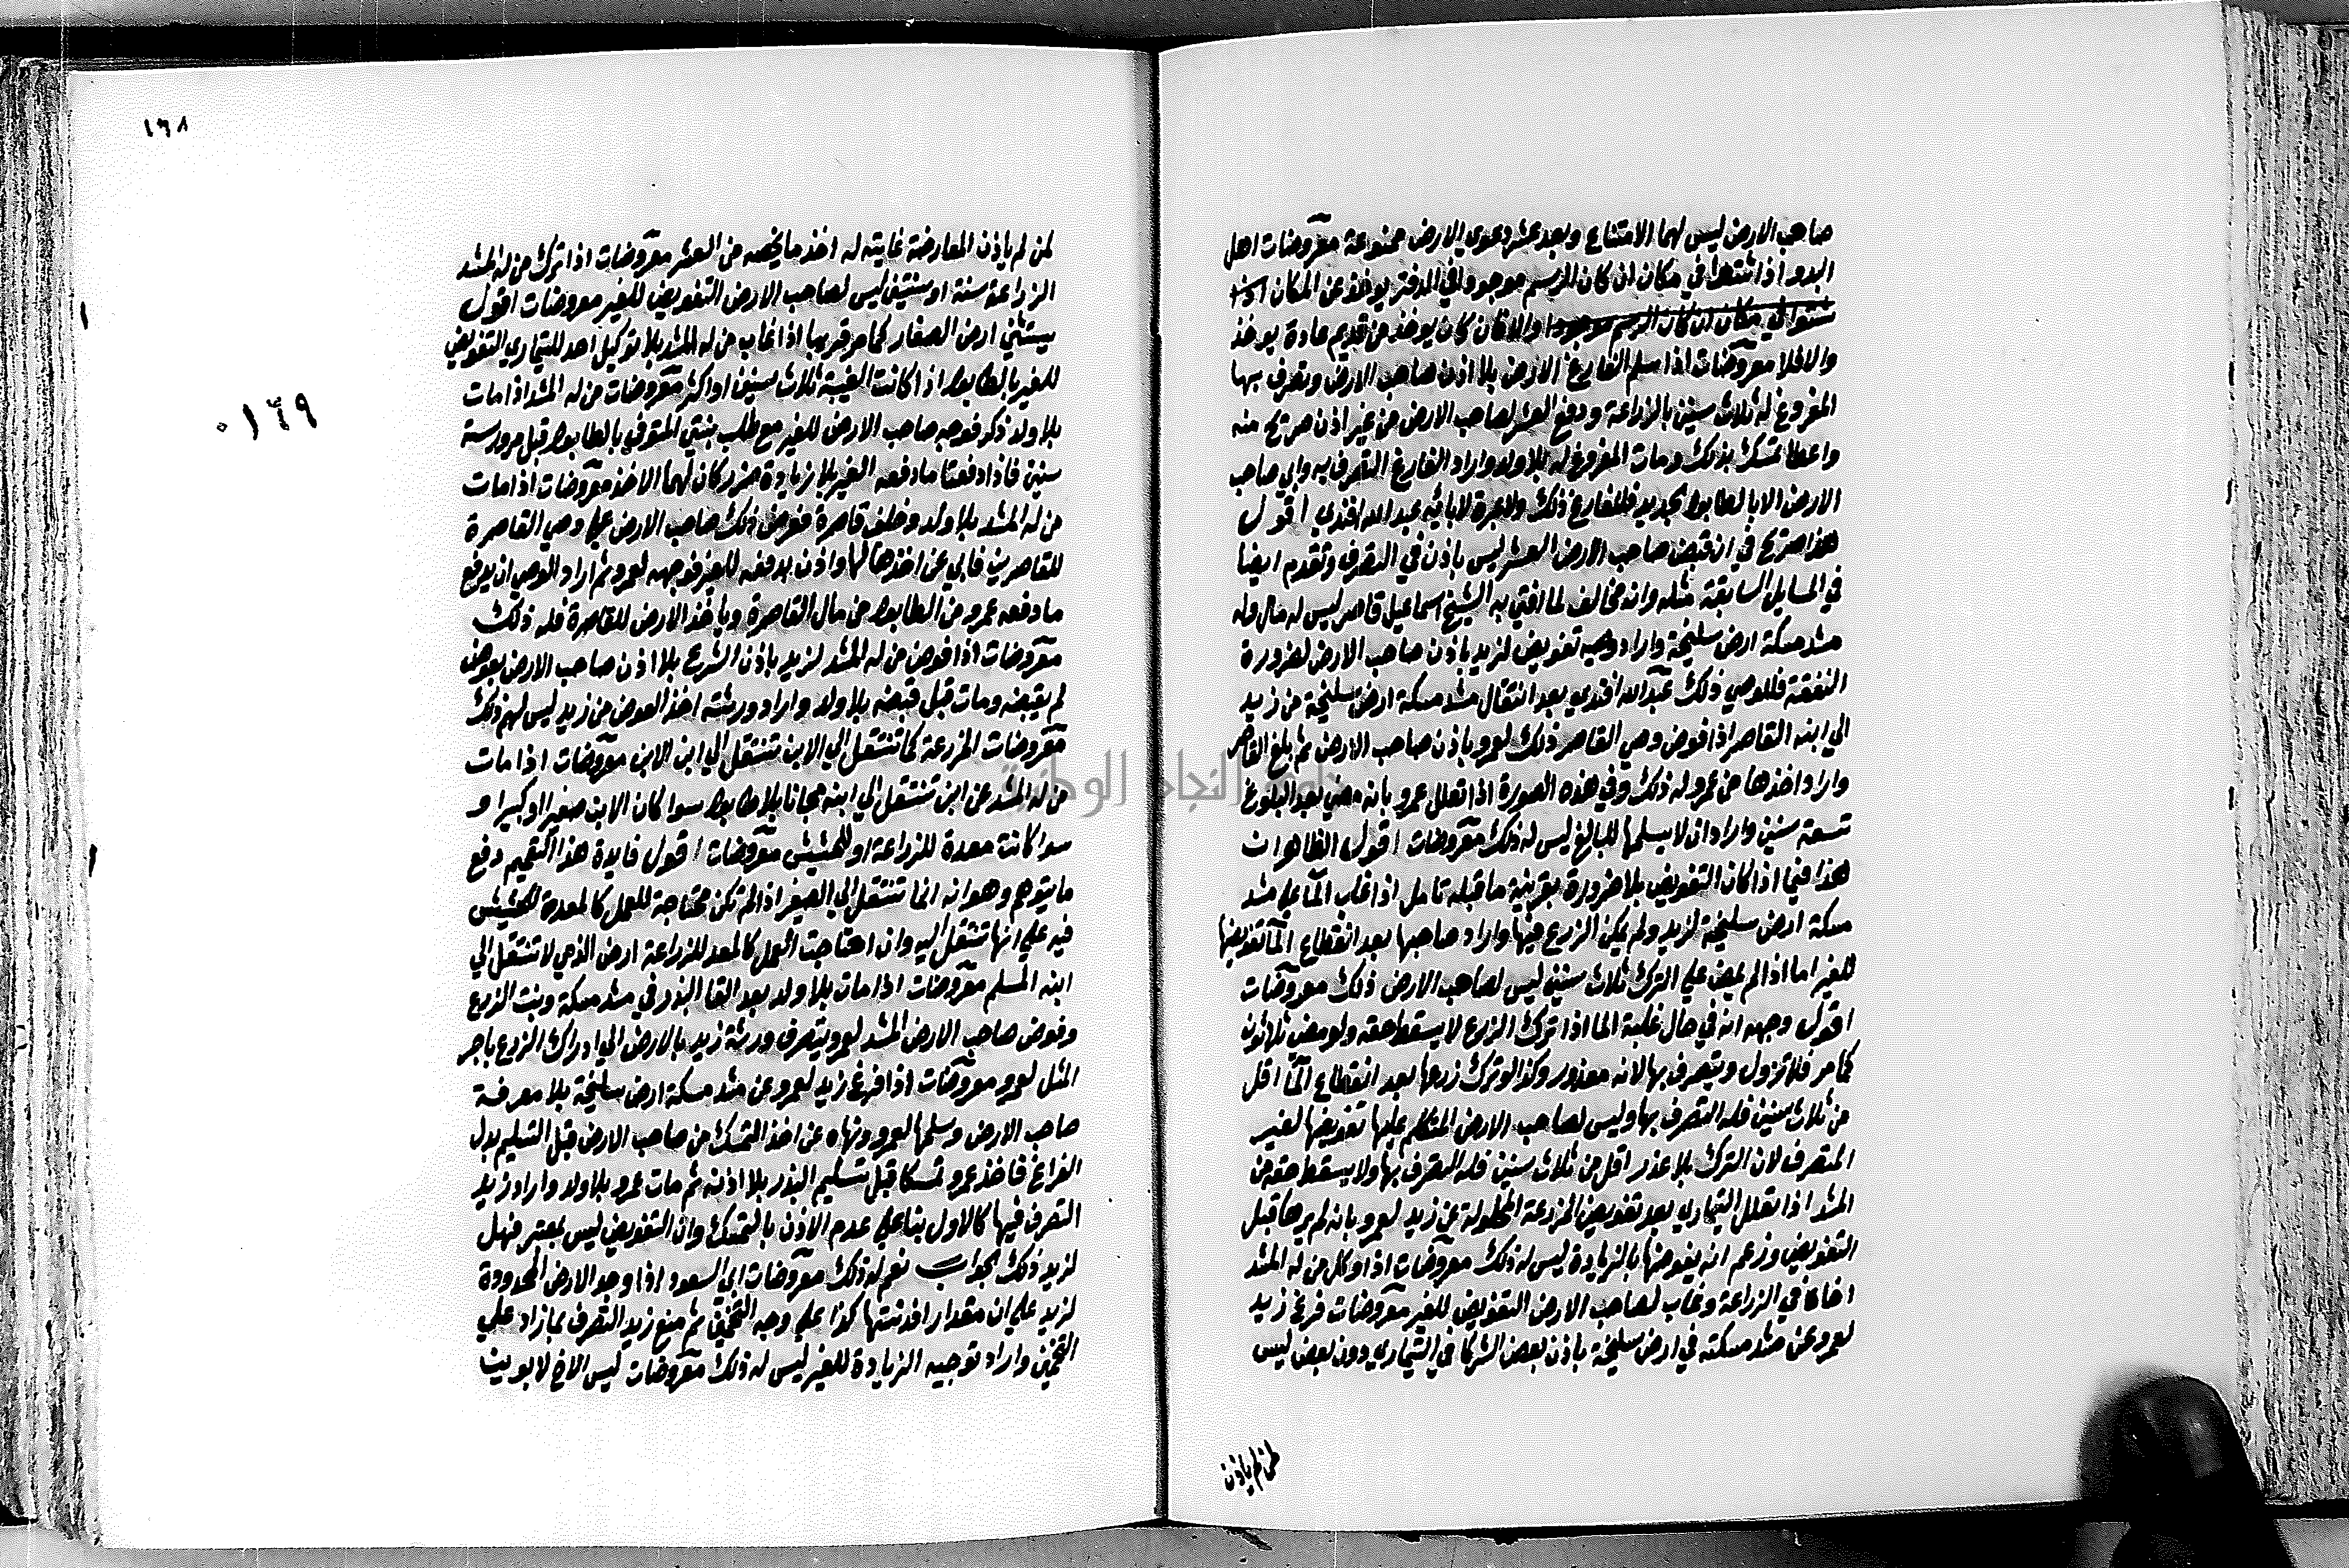 صاحب الارض ليس لهما الامتناع وبعد عشر دعوى الارض ممنوعة معروضات اهل
البدو اذا شتوا في مكان ان كان الرسم موجودا في الدفتر يوخذ عن المكان اذا
شتوا في مكان ان كان الرسم موجودا والا فان كان يوخذ من قديم عادة يوخذ
والا فلا معروضات اذا سلم الفارغ الارض بلا اذن صاحب الارض وتصرف بها
المفروغ له ثلاث سنين بالزراعة ودفع العشر لصاحب الارض من غير اذن صريح منه
واعطا تمسك بذلك ومات المفروغ له بلا ولد واراد الفارغ التصرف به وابى صاحب
الارض الا بالطابو الجديد فللفارغ ذلك ولا عبرة لابائه عبد الله افندي اقول
هذا صريح في ان قبض صاحب الارض العشر ليس باذن في التصرف وتقدم ايضا
في المسايل السابقة مثله وانه مخالف لما افتى به الشيخ اسماعيل قاصر ليس له مال وله
مشد مسكة ارض سليخة واراد وصيه تفويض لزيد باذن صاحب الارض لضرورة
النفقة فللوصي ذلك عبد الله افندي بعد انتقال مشد مسكة ارض سليخة من زيد
الى ابنه القاصر اذا فوض وصي القاصر ذلك لعمرو باذن صاحب الارض ثم بلغ القاصر
واراد اخذها من عمرو له ذلك وفي هذه الصورة اذا تعلل عمرو بانه مضى بعد البلوغ
تسعة سنين واراد ان لا يسلمها للبالغ ليس له ذلك معروضات اقول الظاهر ان
هذا فيما اذا كان التفويض بلا ضرورة بقرينة ما قبله تامل اذا غلب الما على مشد
مسكة ارض سليخة لزيد ولم يمكن الزرع فيها واراد صاحبها بعد انقطاع الما تفويضها
للغير اما اذا لم يمض على الترك ثلاث سنين ليس لصاحب الارض ذلك معروضات
اقول وجهه انه في حال غلبة الما اذا ترك الزرع لا يسقط حقه ولو مضى ثلاثون
كما مر فلا تزول ويتصرف بها لانه معذور وكذا لو ترك زرعها بعد انقطاع الما اقل
من ثلاث سنين فله التصرف بها وليس لصاحب الارض المتكلم عليها تفويضها لغير
المتصرف لان الترك بلا عذر اقل من ثلاث سنين فله التصرف بها ولا يسقط حقه من
المشد اذا تعلل التيماري بعد تفويض المزرعة المحلولة عن زيد لعمرو بانه لم يرها قبل
التفويض وزعم انه يفوضها بالزيادة ليس له ذلك معروضات اذا وكل من له المشد
اخاه في الزراعة وغاب لصاحب الارض التفويض للغير معروضات فرغ زيد
لعمرو عن مشد مسكته في ارض سليخة باذن بعض الشركا في التيماري دون بعض ليس
لمن لم ياذن
١٦٨
٠١٦٩
لمن لم ياذن المعارضة غايته له اخذ ما يخصه من العشر معروضات اذا ترك من له المشد
الزراعة سنة او سنتين ليس لصاحب الارض التفويض للغير معروضات اقول
يستثنى ارض الصغار كما مر قريبا اذا غاب من له المشد بلا توكيل احد للتيماري التفويض
للغير بالطابو اذا كانت الغيبة ثلاث سنين او اكثر معروضات من له المشد اذا مات
بلا ولد ذكر فوجه صاحب الارض للغير مع طلب بنتي المتوفى بالطابو قبل مرور ستة
سنين فاذا دفعتا ما دفعه الغير بلا زيادة ضرر كان لهما الاخذ معروضات اذا مات
من له المشد بلا ولد وخلف قاصرة فعرض ذلك صاحب الارض على وصي القاصرة
للقاصرين فابى عن اخذها لها واذن بدفعه للغير فوجهه لعمرو ثم اراد الوصي ان يدفع
ما دفعه عمرو من الطابو من مال القاصرة وياخذ الارض للقاصرة فله ذلك
معروضات اذا فوض من له المشد لزيد باذن الشرع بلا اذن صاحب الارض بعوض
لم يقبضه ومات قبل قبضه بلا ولد واراد ورثته اخذ العوض من زيد ليس لهم ذلك
معروضات المزرعة كما تنتقل الى الابن تنتقل الى ابن الابن معروضات اذا مات
من له المشد عن ابن تنتقل الى ابنه مجانا بلا طابو سوا كان الابن صغيرا او كبيرا و
سوا كانت معدة للزراعة او للحشيش معروضات اقول فايدة هذا التعميم دفع
ما يتوهم وهو انه انما تنتقل الى الصغير اذا لم تكن محتاجة للعمل كالمعدة للحشيش
فبه على انها تنتقل اليه وان احتاجت للعمل كالمعد للزراعة ارض الذمي لا تنتقل الى
ابنه المسلم معروضات اذا مات بلا ولد بعد القا البذر في مشد مسكة ونبت الزرع
وفوض صاحب الارض المشد لعمرو يتصرف ورثة زيد بالارض الى ادراك الزرع باجر
المثل لعمرو معروضات اذا فرغ زيد لعمرو عن مشد مسكة ارض سليخة بلا معرفة
صاحب الارض وسلمها لعمرو ونهاه عن اخذ التمسك من صاحب الارض قبل التسليم بدل
الفراغ فاخذ عمرو تمسكا قبل تسليم البذر بلا اذنه ثم مات عمرو بلا ولد واراد زيد
التصرف فيها كالاول بناء على عدم الاذن بالتمسك وان التفويض ليس بمعتبر فهل
لزيد ذلك الجواب نعم له ذلك معروضات ابي السعود اذا وجد الارض المحدودة
لزيد على ان مقدار افدنتها كذا على وجه التخمين ثم منع زيد التصرف بما زاد على
التخمين واراد توجيه الزيادة للغير ليس له ذلك معروضات ليس الاخ لابوين